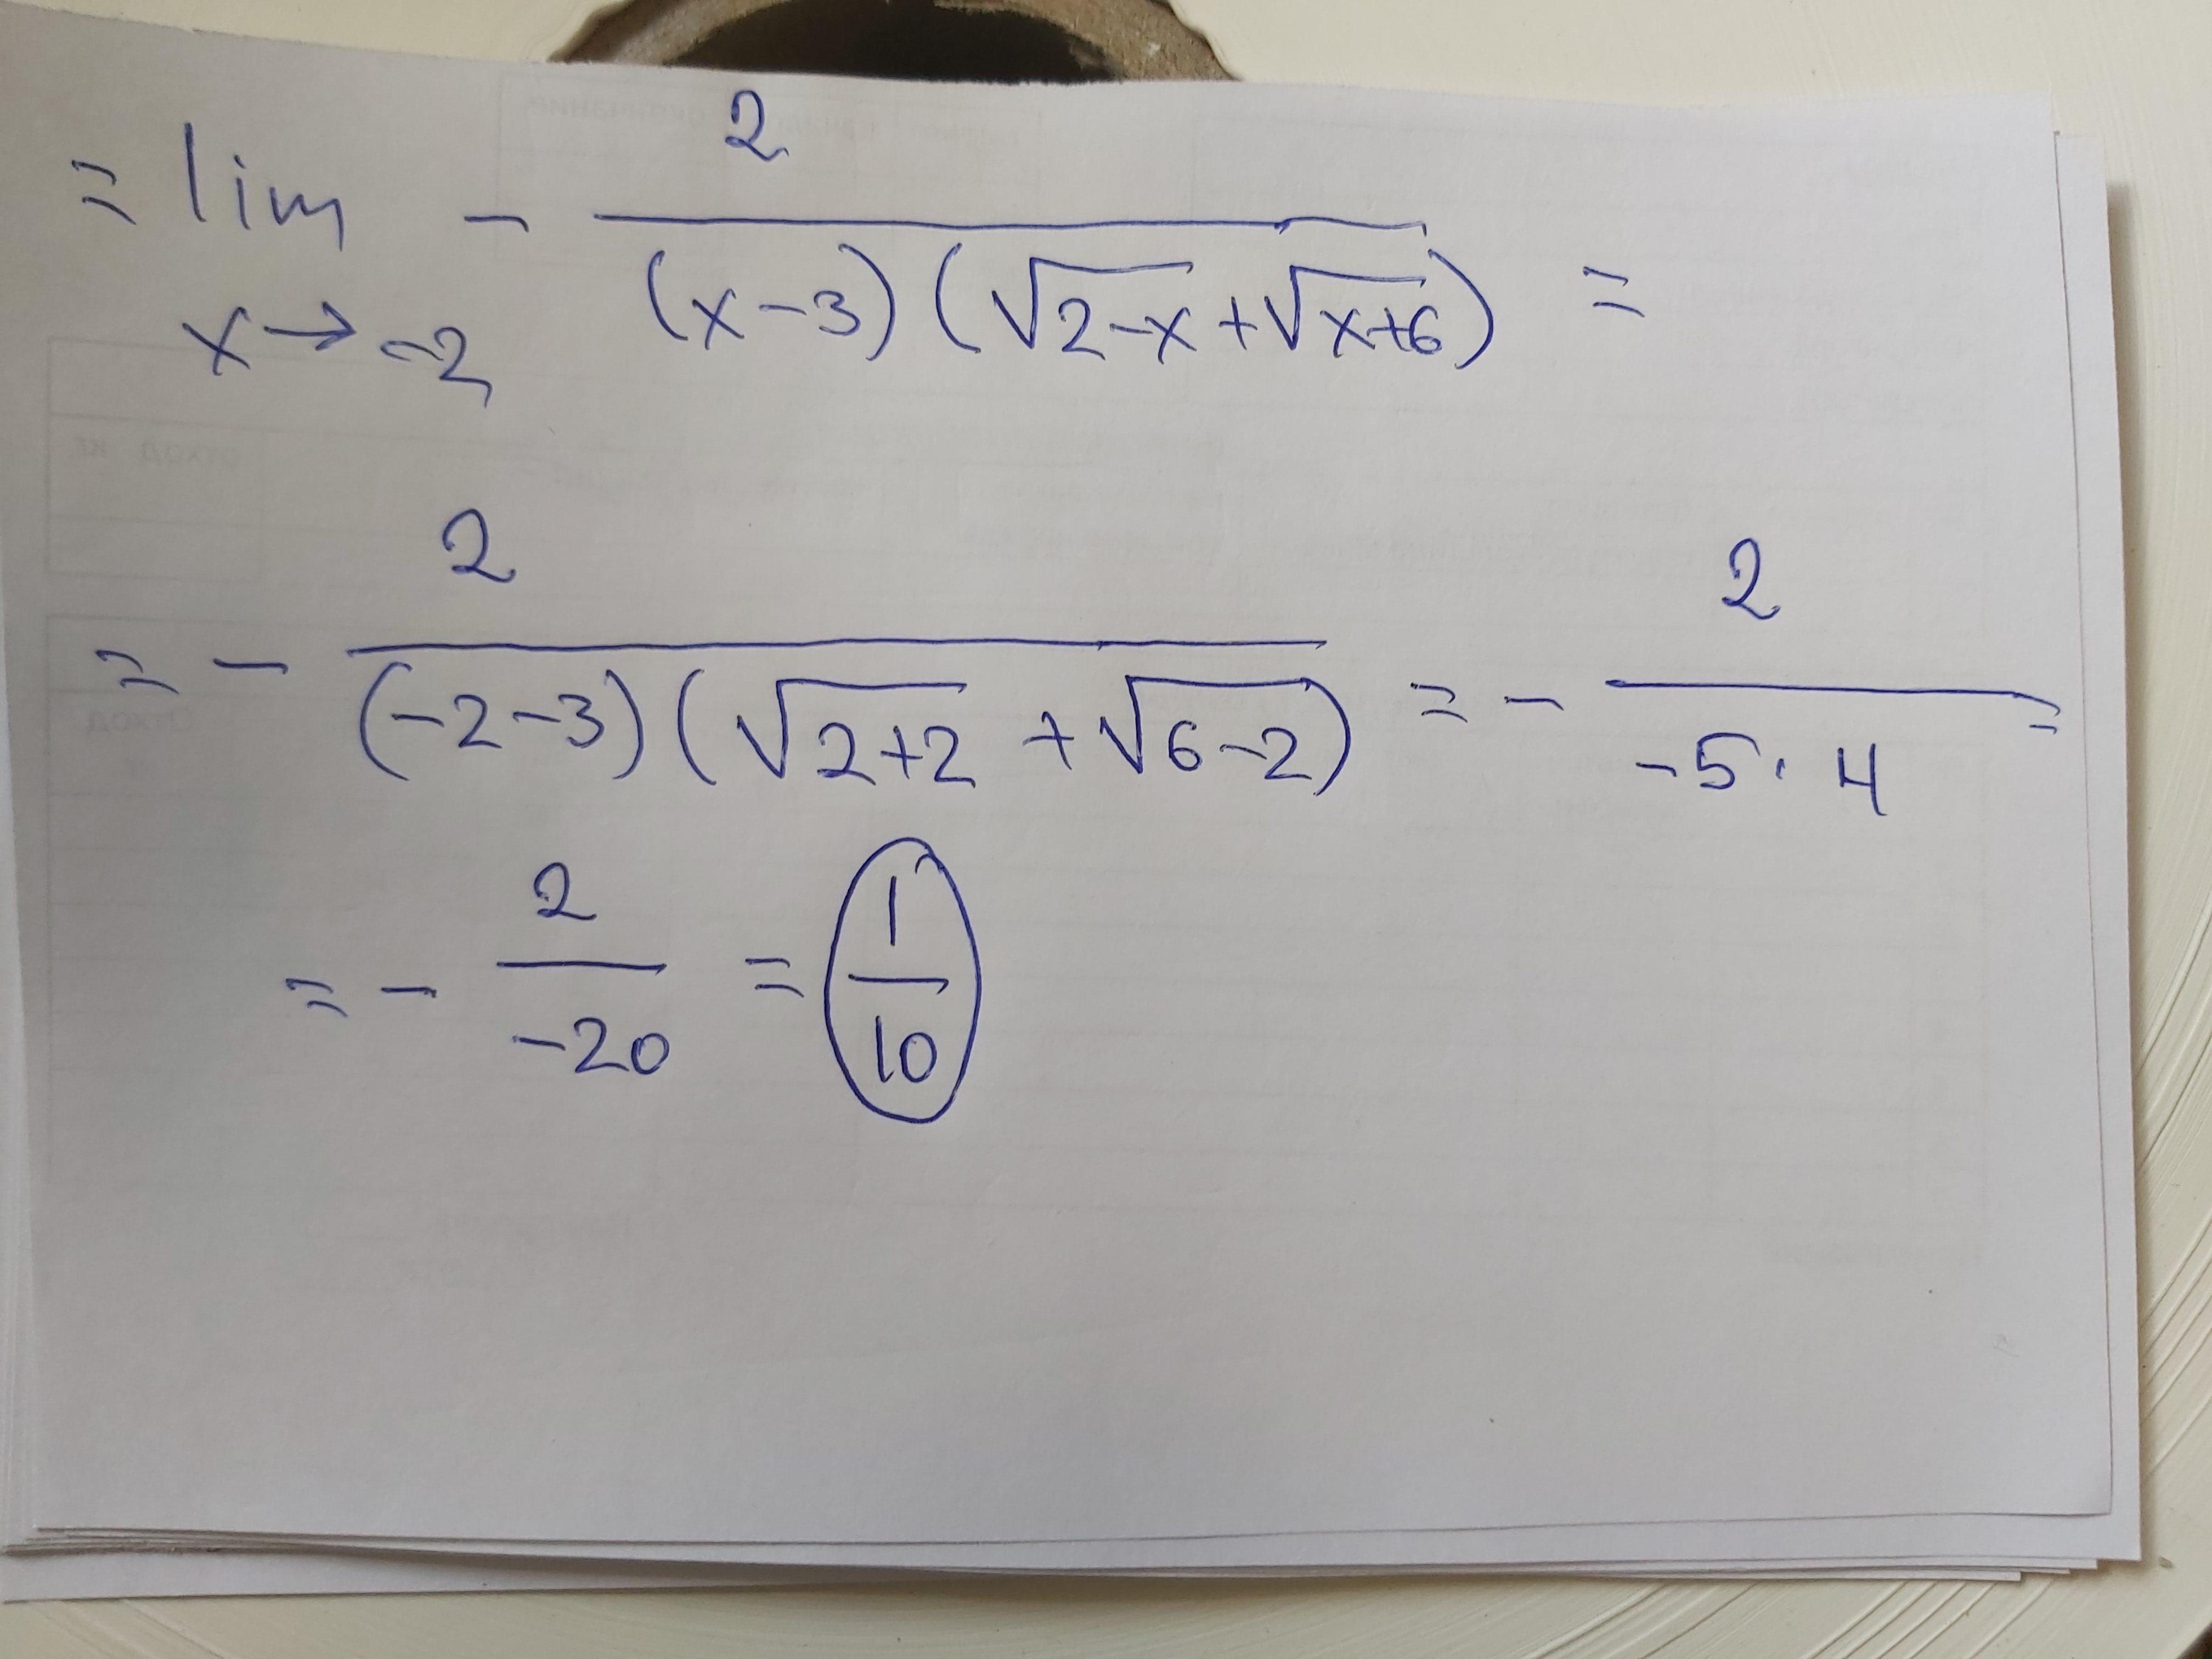 = lim - 2 / ((x-3)(√(2-x)+√(x+6))) =
x→-2
= - 2 / ((-2-3)(√(2+2) + √(6-2))) = - 2 / (-5·4) =
= - 2 / (-20) = 1/10